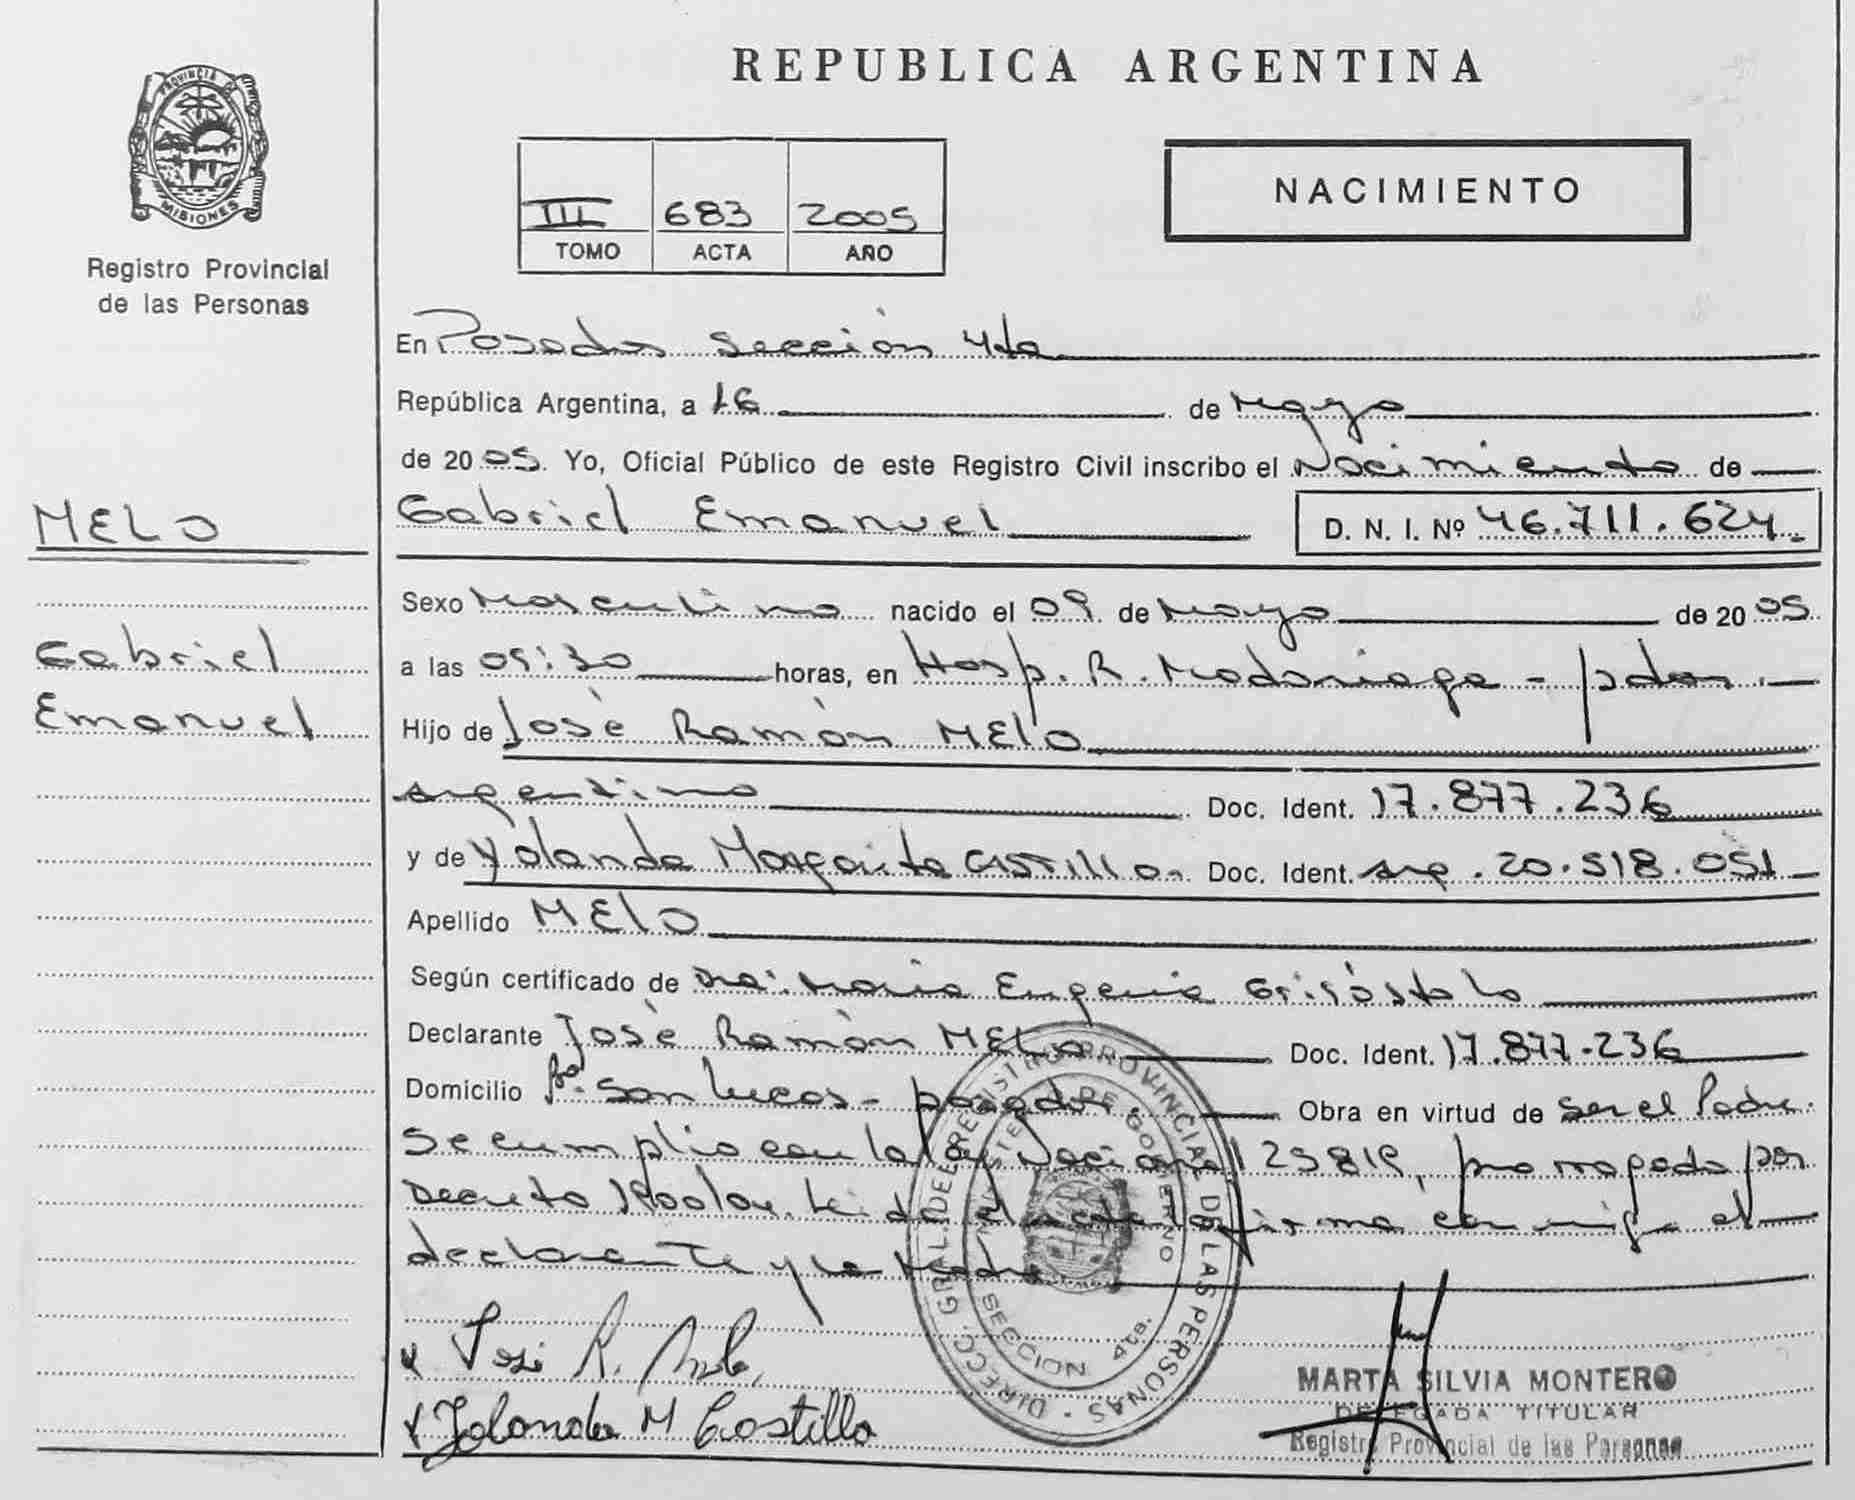 PROVINCIA DE
MISIONES
Registro Provincial
de las Personas
MELO
Gabriel
Emanuel
REPUBLICA ARGENTINA
III 683 2005
TOMO ACTA AÑO
NACIMIENTO
En Posadas Sección 4ta
República Argentina, a 16 de Mayo
de 2005. Yo, Oficial Público de este Registro Civil inscribo el Nacimiento de
Gabriel Emanuel D. N. I. Nº 46.711.624
Sexo Masculino nacido el 09 de Mayo de 2005
a las 05:30 horas, en Hosp. R. Madariaga - pdas.
Hijo de José Ramón MElo
argentino Doc. Ident. 17.877.236
y de Yolanda Margarita CASTILLO Doc. Ident. arg. 20.518.051
Apellido MElO
Según certificado de Dra. María Eugenia
Declarante José Ramón MELO Doc. Ident. 17.877-236
Domicilio Bº. San Lucas - posadas. Obra en virtud de ser el Padre.
Se cumplio con la Ley Nacional 25819, prorrogada por
Decreto Leida el acta la firma conmigo el
declarante y la Madre
José R.
Yolanda M Castillo
DIRECC. GRAL. DE REGISTRO PROVINCIAL DE LAS PERSONAS
MINISTERIO DE GOBIERNO
SECCION 4ta.
MARTA SILVIA MONTERO
DELEGADA TITULAR
Registro Provincial de las Personas